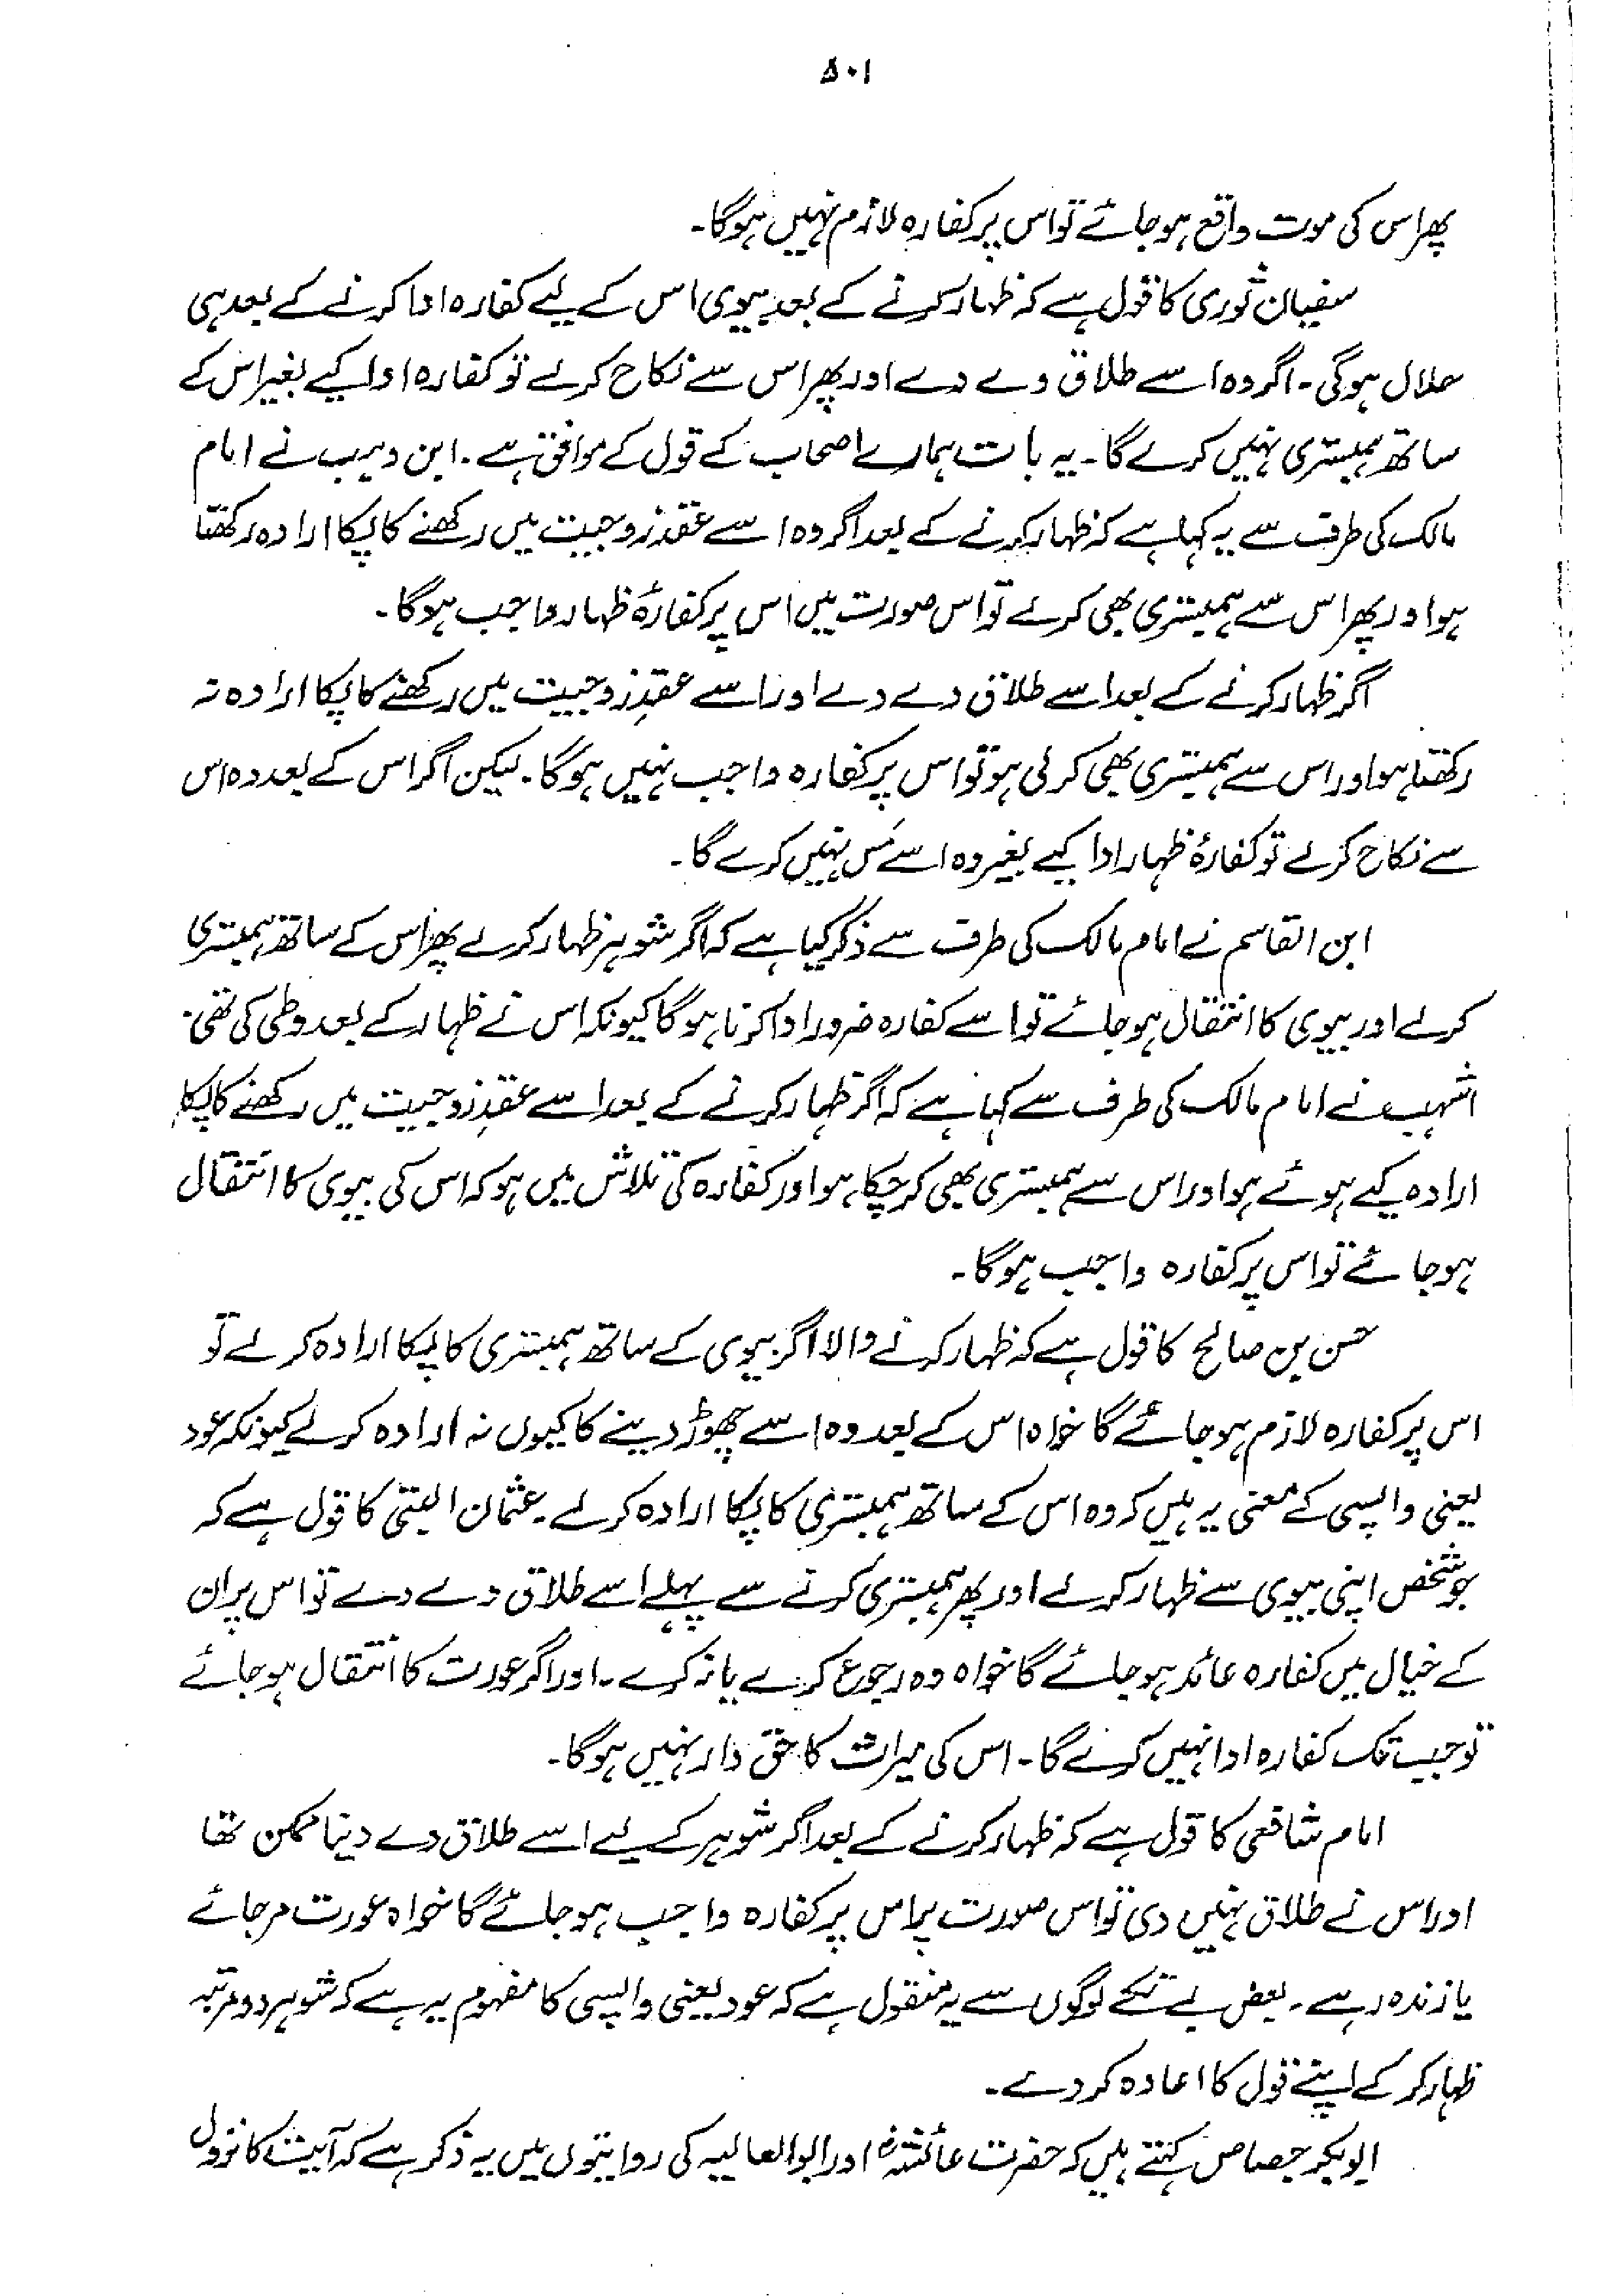 ۵۰۱
پھر اس کی موت واقع ہو جائے تو اس پر کفارہ لازم نہیں ہوگا۔
سفیان ثوری کا قول ہے کہ ظہار کرنے کے بعد بیوی اس کے لیے کفارہ ادا کرنے کے بعد ہی
حلال ہوگی۔ اگر وہ اسے طلاق دے دے اور پھر اس سے نکاح کر لے تو کفارہ ادا کیے بغیر اس کے
ساتھ ہمبستری نہیں کرے گا۔ یہ بات ہمارے اصحاب کے قول کے موافق ہے۔ ابن وہب نے امام
مالک کی طرف سے یہ کہا ہے کہ ظہار کرنے کے بعد اگر وہ اسے عقد زوجیت میں رکھنے کا پکا ارادہ رکھتا
ہو اور پھر اس سے ہمبستری بھی کر لے تو اس صورت میں اس پر کفارۂ ظہار واجب ہوگا۔
اگر ظہار کرنے کے بعد اسے طلاق دے دے اور اسے عقدِ زوجیت میں رکھنے کا پکا ارادہ نہ
رکھتا ہو اور اس سے ہمبستری بھی کر لی ہو تو اس پر کفارہ واجب نہیں ہوگا۔ لیکن اگر اس کے بعد وہ اس
سے نکاح کر لے تو کفارۂ ظہار ادا کیے بغیر وہ اسے مَس نہیں کرے گا۔
ابن القاسم نے امام مالک کی طرف سے ذکر کیا ہے کہ اگر شوہر ظہار کر لے پھر اس کے ساتھ ہمبستری
کر لے اور بیوی کا انتقال ہو جائے تو اسے کفارہ ضرور ادا کرنا ہوگا کیونکہ اس نے ظہار کے بعد وطی کی تھی۔
اشہب نے امام مالک کی طرف سے کہا ہے کہ اگر ظہار کرنے کے بعد اسے عقدِ زوجیت میں رکھنے کا پکا
ارادہ کیے ہوئے ہو اور اس سے ہمبستری بھی کر چکا ہو اور کفارہ کی تلاش میں ہو کہ اس کی بیوی کا انتقال
ہو جائے تو اس پر کفارہ واجب ہوگا۔
حسن بن صالح کا قول ہے کہ ظہار کرنے والا اگر بیوی کے ساتھ ہمبستری کا پکا ارادہ کر لے تو
اس پر کفارہ لازم ہو جائے گا خواہ اس کے بعد وہ اسے چھوڑ دینے کا کیوں نہ ارادہ کر لے کیونکہ عود
یعنی واپسی کے معنی یہ ہیں کہ وہ اس کے ساتھ ہمبستری کا پکا ارادہ کر لے۔ عثمان البتی کا قول ہے کہ
جو شخص اپنی بیوی سے ظہار کر لے اور پھر ہمبستری کرنے سے پہلے اسے طلاق دے دے تو اس پر ان
کے خیال میں کفارہ عائد ہو جائے گا خواہ وہ رجوع کرے یا نہ کرے۔ اور اگر عورت کا انتقال ہو جائے
تو جب تک کفارہ ادا نہیں کرے گا۔ اس کی میراث کا حق دار نہیں ہوگا۔
امام شافعی کا قول ہے کہ ظہار کرنے کے بعد اگر شوہر کے لیے اسے طلاق دے دینا ممکن تھا
اور اس نے طلاق نہیں دی تو اس صورت پر اس پر کفارہ واجب ہو جائے گا خواہ عورت مر جائے
یا زندہ رہے۔ بعض بے تکے لوگوں سے یہ منقول ہے کہ عود یعنی واپسی کا مفہوم یہ ہے کہ شوہر دو مرتبہ
ظہار کر کے اپنے قول کا اعادہ کر دے۔
ابوبکر جصاص کہتے ہیں کہ حضرت عائشہؓ اور ابوالعالیہ کی روایتوں میں یہ ذکر ہے کہ آیت کا نزول